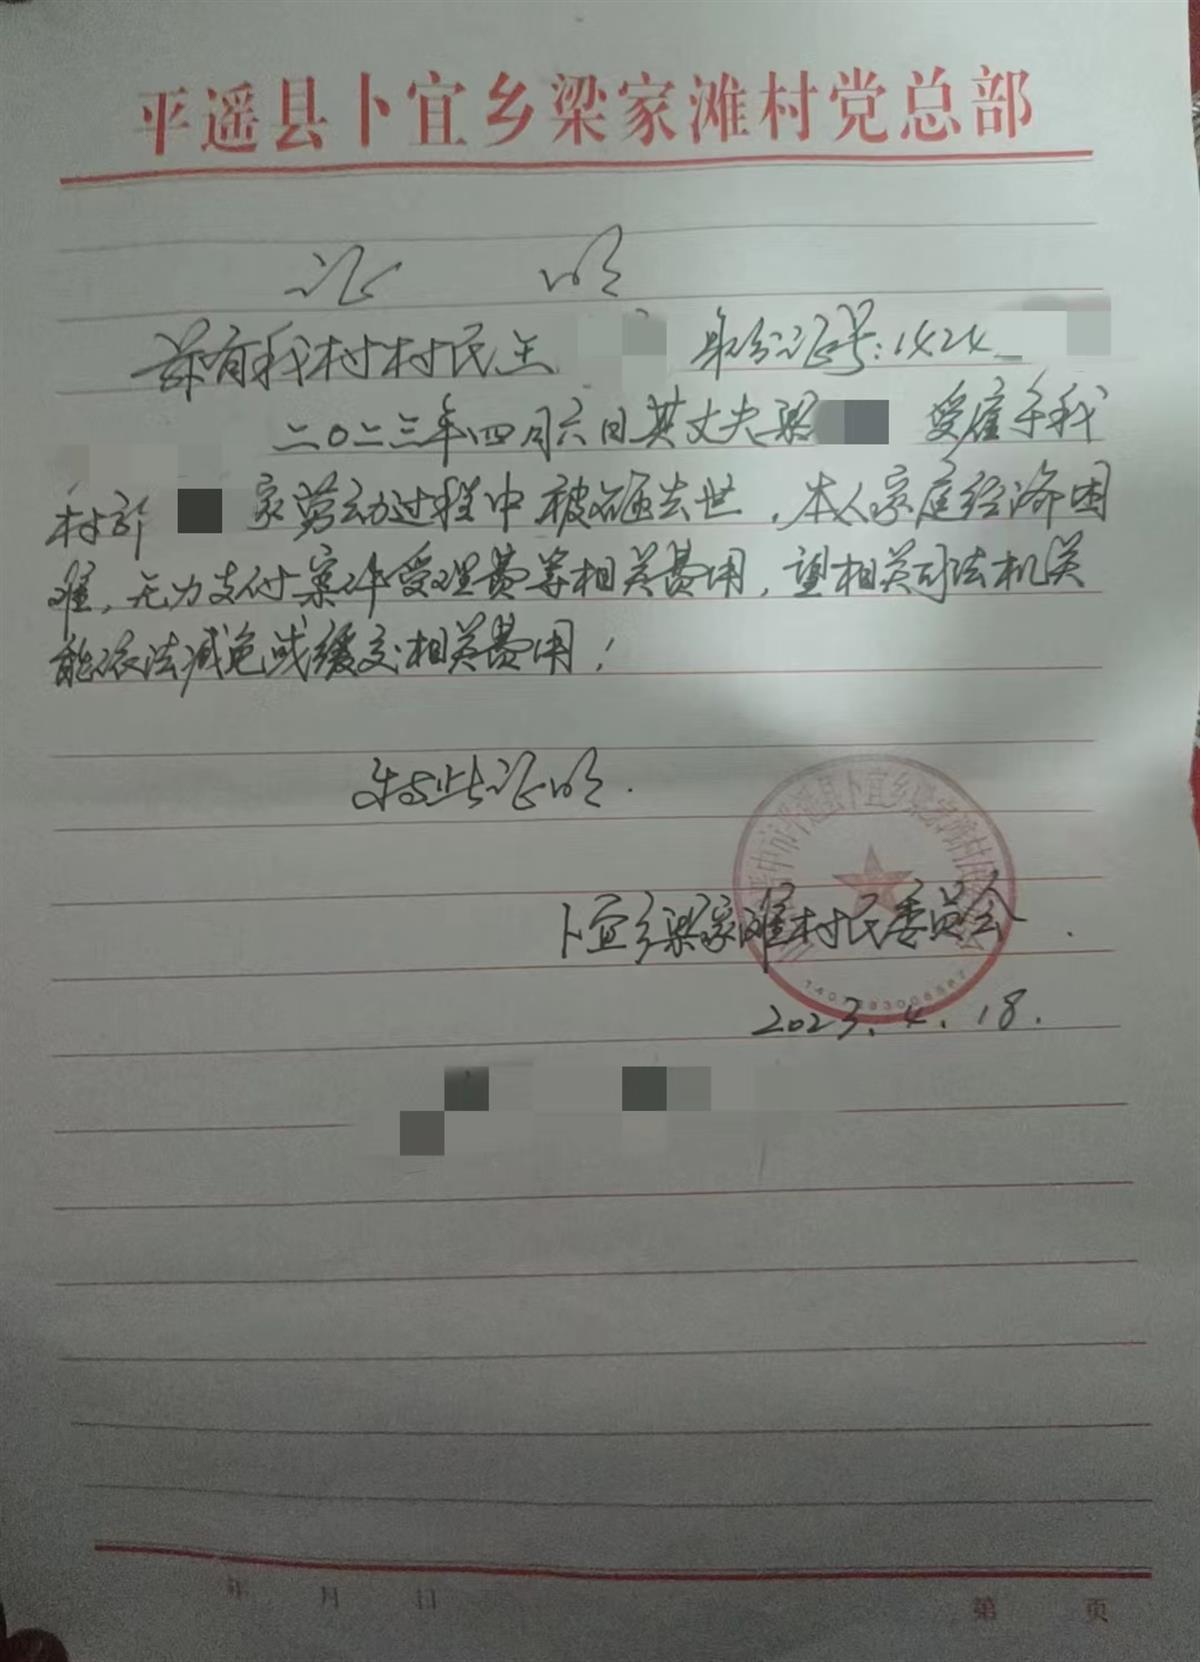 平遥县卜宜乡梁家滩村党总部
证 明
兹有我村村民王 身份证号:1424
二〇二三年四月六日其丈夫梁 受雇于我
村 家劳动过程中被砸去世,本人家庭经济困
难,无力支付案件受理费等相关费用,望相关司法机关
能依法减免或缓交相关费用!
特此证明.
卜宜乡梁家滩村民委员会
2023.4.18.
年 月 日 第 页